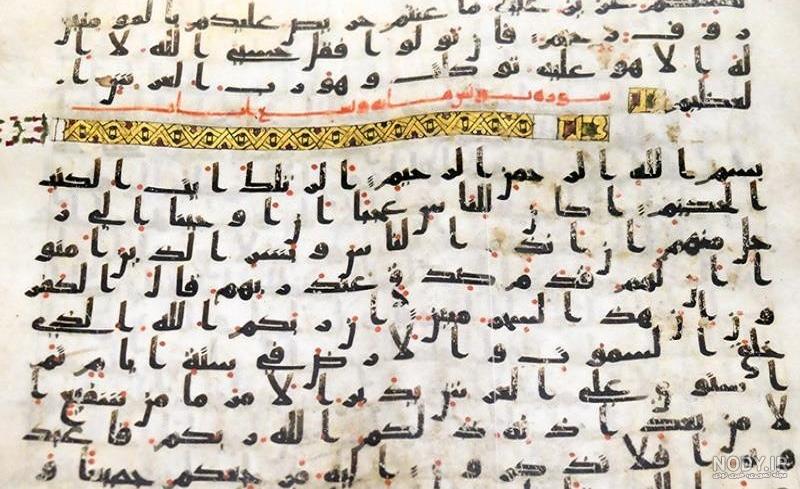 عزيز عليه ما عنتم حريص عليكم بالمومنين
روف رحيم فان تولوا فقل حسبي الله لا ا
له الا هو عليه توكلت وهو رب العرش ا
لعظيم
سورة يونس مائة وتسع ايات
بسم الله الرحمن الرحيم الر تلك ايت الكتب
الحكيم اكان للناس عجبا ان اوحينا الى ر
جل منهم ان انذر الناس وبشر الذين امنو
ا ان لهم قدم صدق عند ربهم قال الكفر
ون ان هذا لسحر مبين ان ربكم الله الذي
خلق السموت والارض في ستة ايام ثم
استوى على العرش يدبر الامر ما من شفيع ا
لا من بعد اذنه ذلكم الله ربكم فاعبد
وه افلا تذكرون اليه مرجعكم جميعا و
NODY.IR